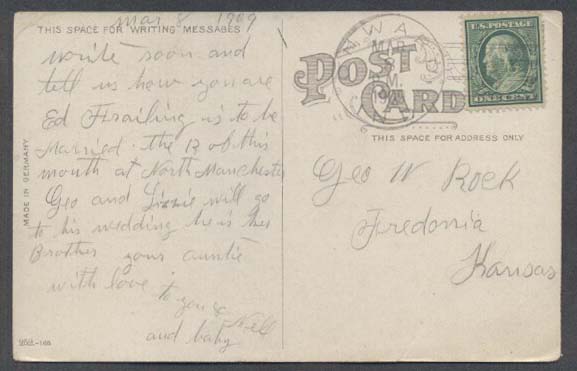 mar 8 1909
THIS SPACE FOR WRITING MESSAGES
write soon and
tell us how you are
Ed Frailing is to be
Married the 13 of this
month at North Manchester
Geo and Lizzie will go
to his wedding he is her
Brother your auntie
with love
to you &
and baby Nell
MADE IN GERMANY
POST CARD
MAR
U.S. POSTAGE
ONE CENT
THIS SPACE FOR ADDRESS ONLY
Geo W Rock
Fredonia
Kansas